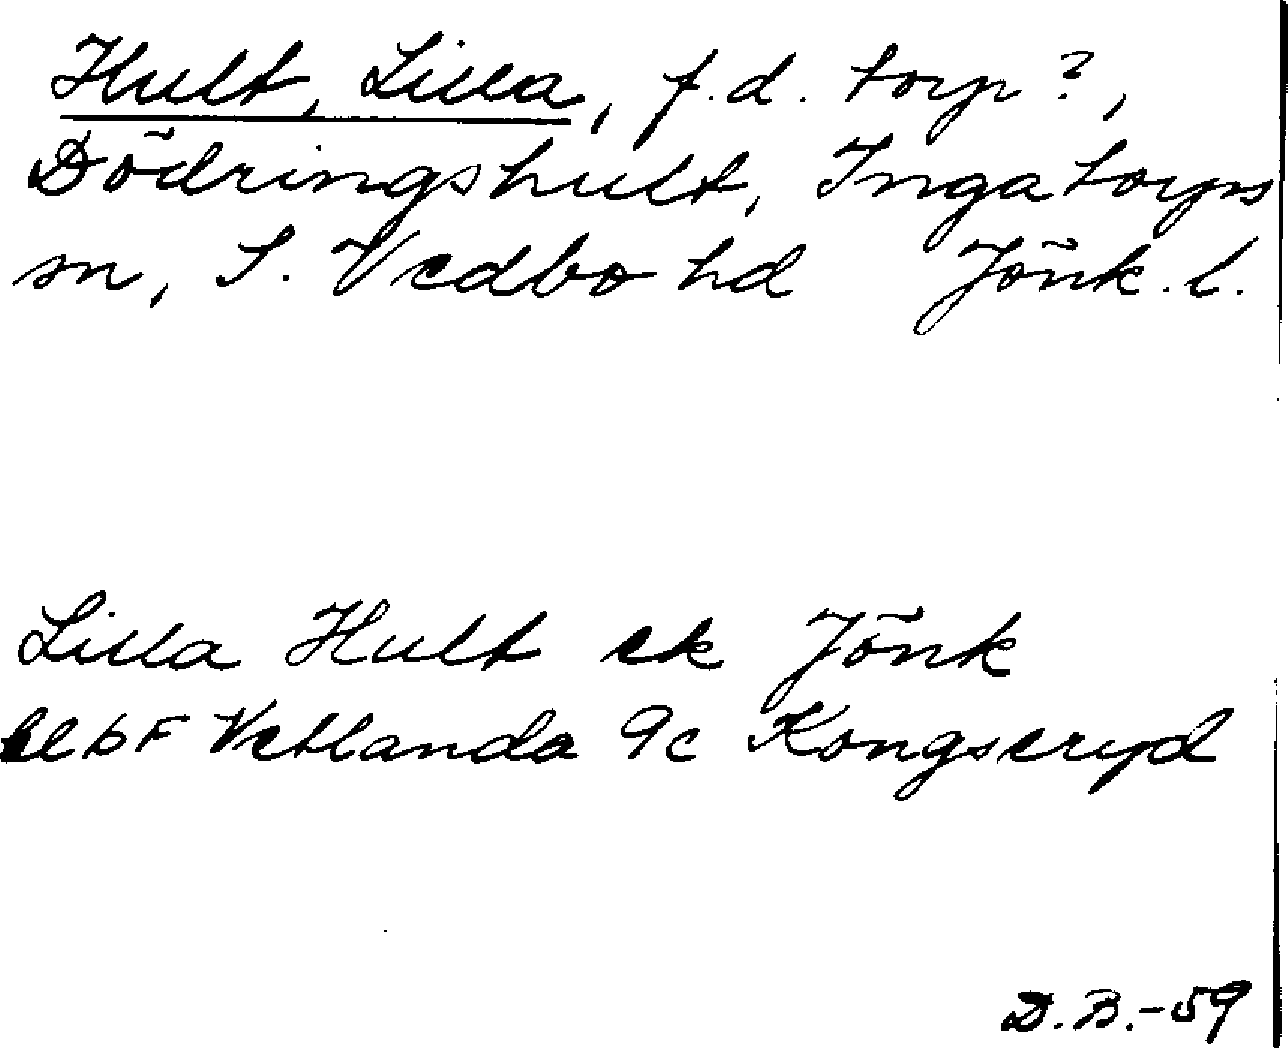 Hult, Lilla, f.d. torp?,
Dödringshult, Ingatorps
sn, S. Vedbo hd Jönk. l.
Lilla Hult ek Jönk
bl 6F Vetlanda 9c Kongseryd
D.B.-59